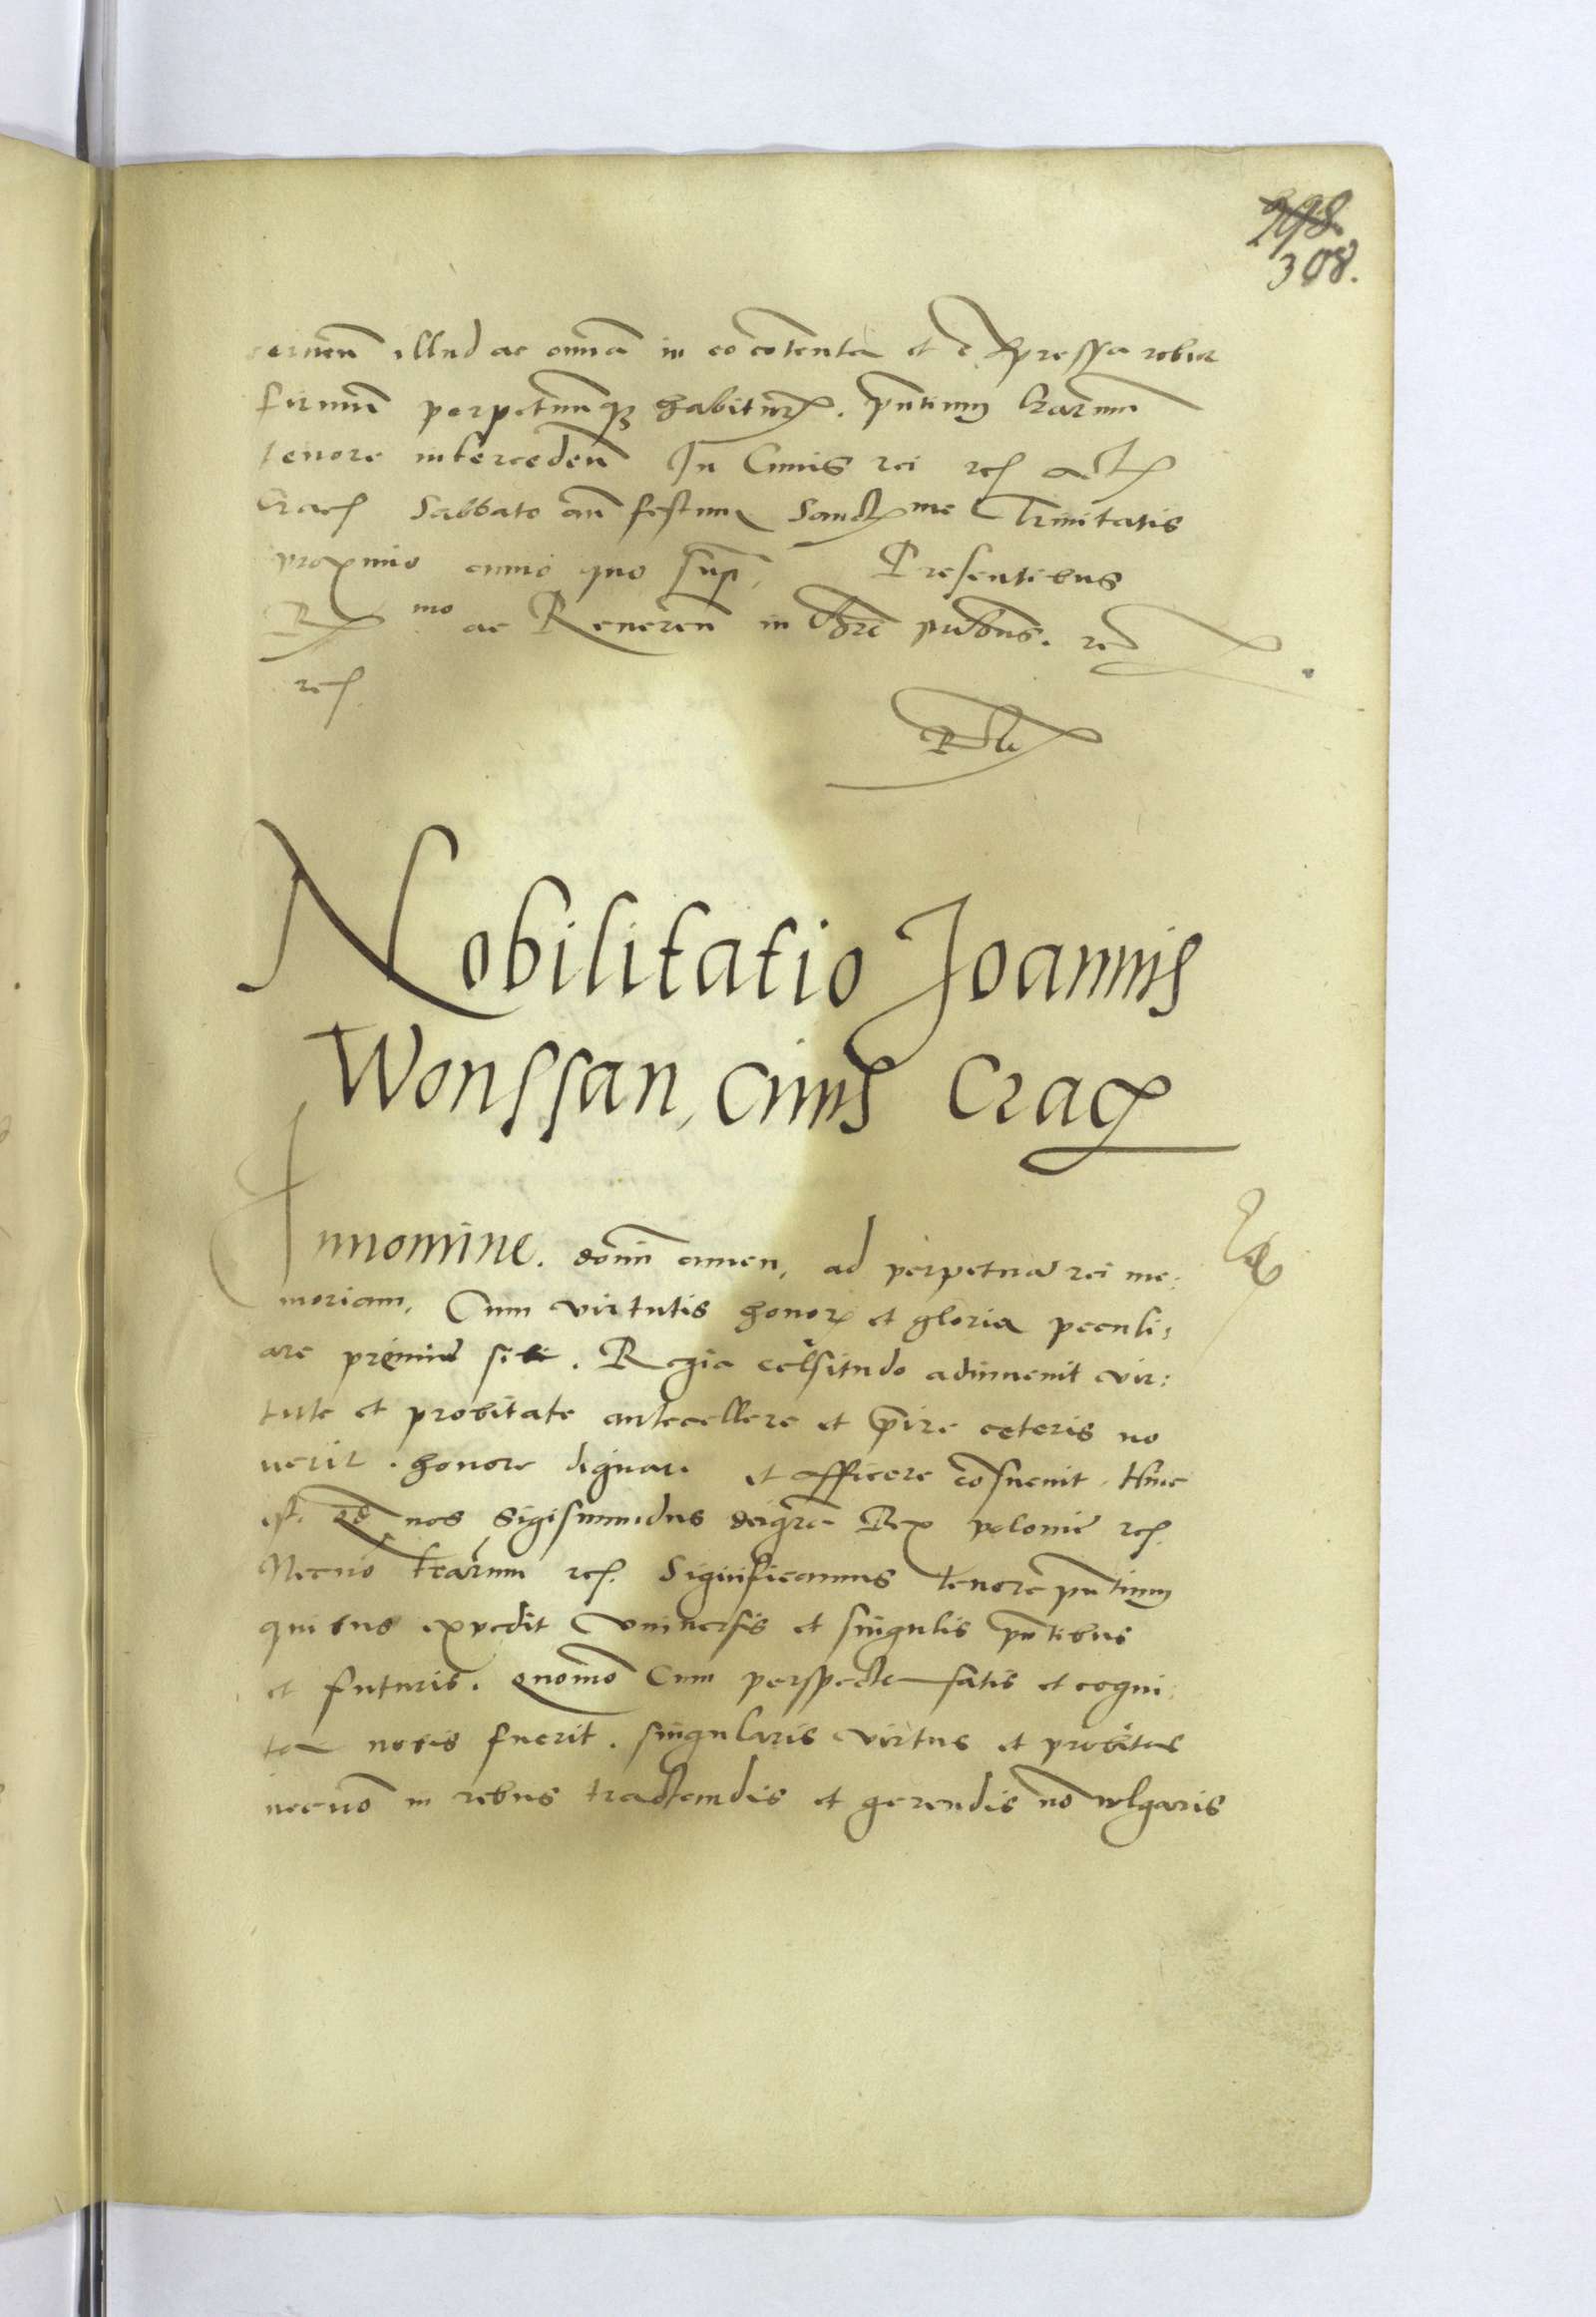 298.
308.
illud ac omnia in eo contenta et expressa robur
firmum perpetuumq habitur. pntium
tenore interceden In Cuius rei
Crac Sabbato an festum Sanctme Trinitatis
proximo anno quo sup. Presentibus
R mo ac Reveren in
rc
Nobilitatio Joannis
Wonssan, civis Crac
In nomine. domini amen, ad perpetua rei me:
moriam, Cum virtutis honor et gloria peculi:
are premiu sit. Regia celsitudo adinvenit vir:
tute et probitate antecellere et preire ceteris no
verit. honore dignari et afficere cosuevit. Hinc
est. qd nos Sigismundus dei gra Rex polonie rc
Necno rc. Significamus tenore pntium
quibus expedit Universis et singulis pntibus
et futuris. quomo Cum perspecta satis et cogni:
ta nobis fuerit. singularis virtus et probitas
necno in rebus tractandis et gerendis no vulgaris